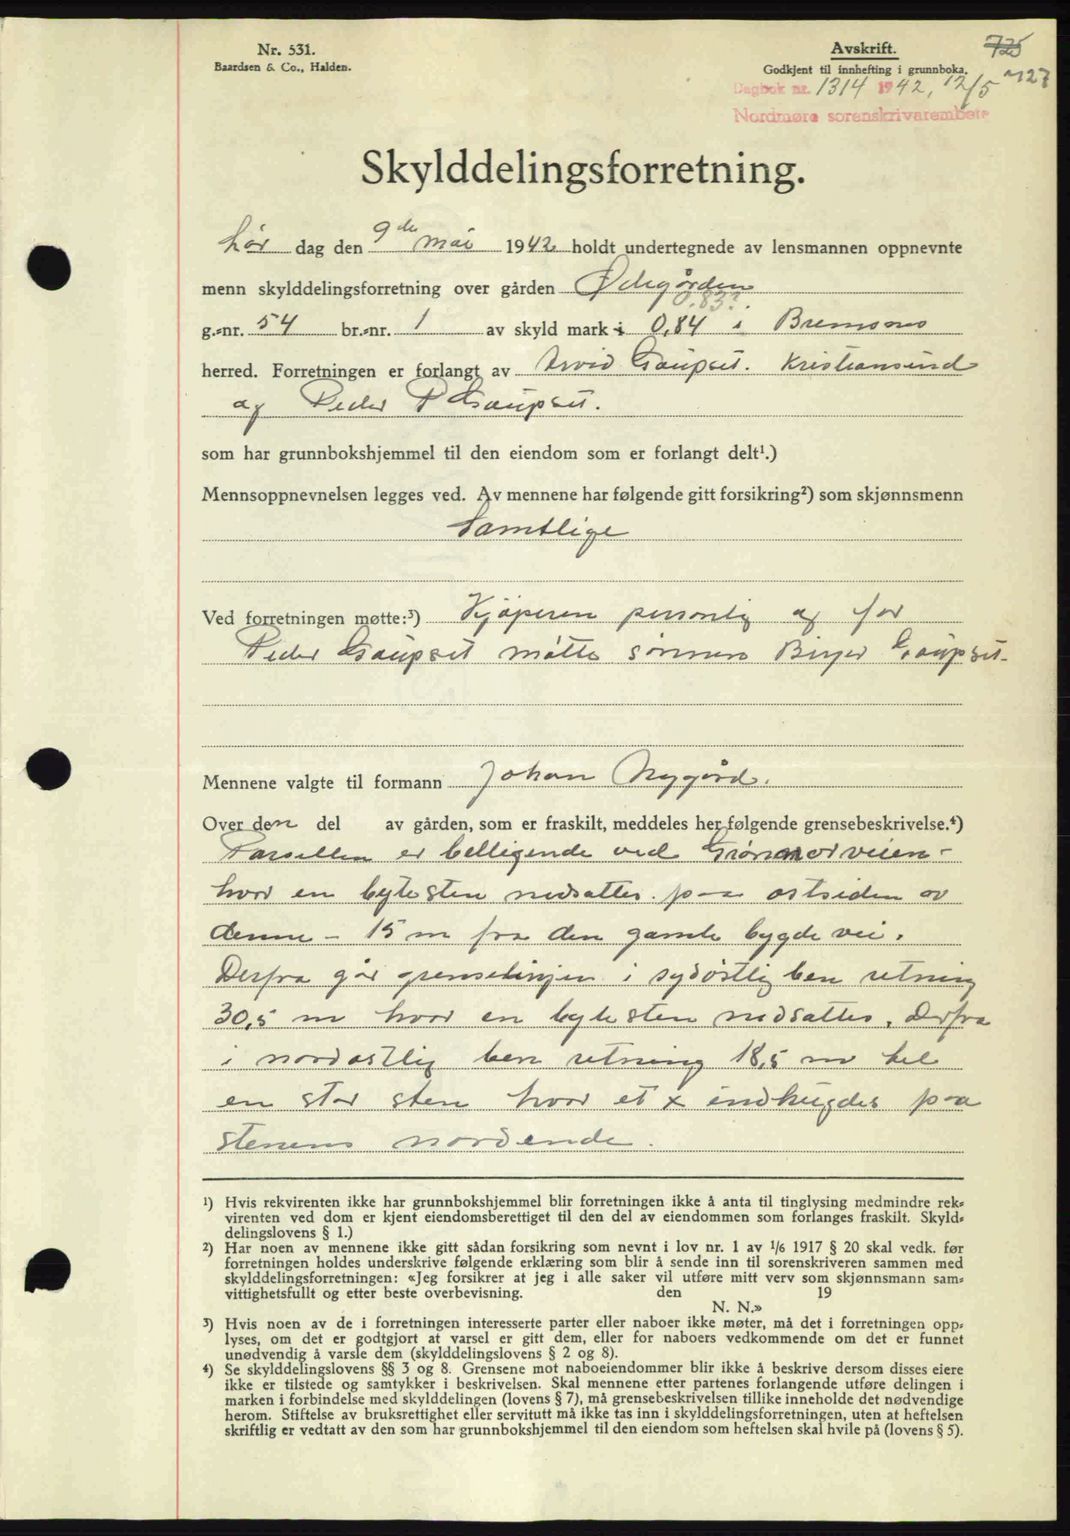 Nr. 531.
Baardsen & Co., Halden.
Avskrift.
Godkjent til innhefting i grunnboka.
725
727
Dagbok nr. 1314 1942, 12/5
Nordmøre sorenskrivarembete
Skylddelingsforretning.
hør dag den 9de mai 1942 holdt undertegnede av lensmannen oppnevnte
menn skylddelingsforretning over gården Ødegården
0.83?
g.-nr. 54 br.-nr. 1 av skyld mark 0,84 i Bremsnes
herred. Forretningen er forlangt av Arvid Gaupset. Kristiansund
og Peder P Gaupset.
som har grunnbokshjemmel til den eiendom som er forlangt delt¹.)
Mennsoppnevnelsen legges ved. Av mennene har følgende gitt forsikring²) som skjønnsmenn
Samtlige
Ved forretningen møtte:³) Kjøperen personlig og for
Peder Gaupset møtte sønnen Birger Gaupset.
Mennene valgte til formann Johan Nygård.
Over den del av gården, som er fraskilt, meddeles her følgende grensebeskrivelse.⁴)
Parsellen er belligende ved Grønmorveien -
hvor en bytesten nedsattes paa østsiden av
denne - 15 m fra den gamle bygdevei.
Derfra går grenselinjen i sydøstlig ben retning
30,5 m hvor en bytesten nedsattes. Derfra
i nordøstlig ben retning 18,5 m til
en stor sten hvor et x indhugdes paa
stenens nordende.
¹) Hvis rekvirenten ikke har grunnbokshjemmel blir forretningen ikke å anta til tinglysing medmindre rek-
virenten ved dom er kjent eiendomsberettiget til den del av eiendommen som forlanges fraskilt. Skyld-
delingslovens § 1.)
²) Har noen av mennene ikke gitt sådan forsikring som nevnt i lov nr. 1 av 1/6 1917 § 20 skal vedk. før
forretningen holdes underskrive følgende erklæring som blir å sende inn til sorenskriveren sammen med
skylddelingsforretningen: «Jeg forsikrer at jeg i alle saker vil utføre mitt verv som skjønnsmann sam-
vittighetsfullt og etter beste overbevisning. den 19
N. N.»
³) Hvis noen av de i forretningen interesserte parter eller naboer ikke møter, må det i forretningen opp-
lyses, om det er godtgjort at varsel er gitt dem, eller for naboers vedkommende om det er funnet
unødvendig å varsle dem (skylddelingslovens § 2 og 8).
⁴) Se skylddelingslovens §§ 3 og 8. Grensene mot naboeiendommer blir ikke å beskrive dersom disses eiere
ikke er tilstede og samtykker i beskrivelsen. Skal mennene etter partenes forlangende utføre delingen i
marken i forbindelse med skylddelingen (lovens § 7), må grensebeskrivelsen tillike inneholde det nødvendige
herom. Stiftelse av bruksrettighet eller servitutt må ikke tas inn i skylddelingsforretningen, uten at heftelsen
skriftlig er vedtatt av den som har grunnbokshjemmel til den eiendom som heftelsen skal hvile på (lovens § 5).